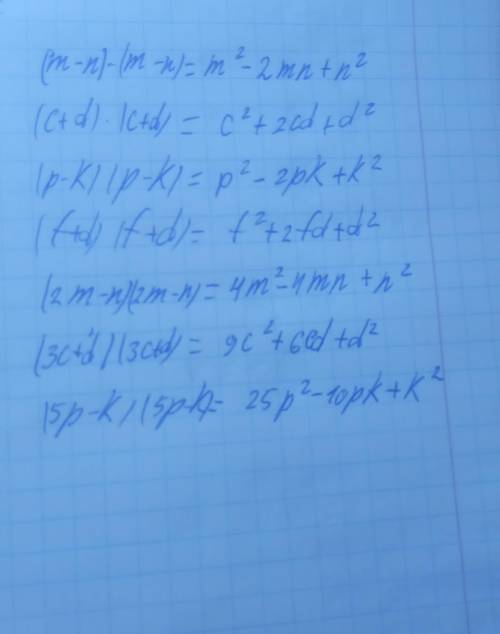 (m-n)·(m-n)=m²-2mn+n²
(c+d)·(c+d)=c²+2cd+d²
(p-k)(p-k)=p²-2pk+k²
(f+d)(f+d)=f²+2fd+d²
(2m-n)(2m-n)=4m²-4mn+n²
(3c+d)(3c+d)=9c²+6cd+d²
(5p-k)(5p-k)=25p²-10pk+k²